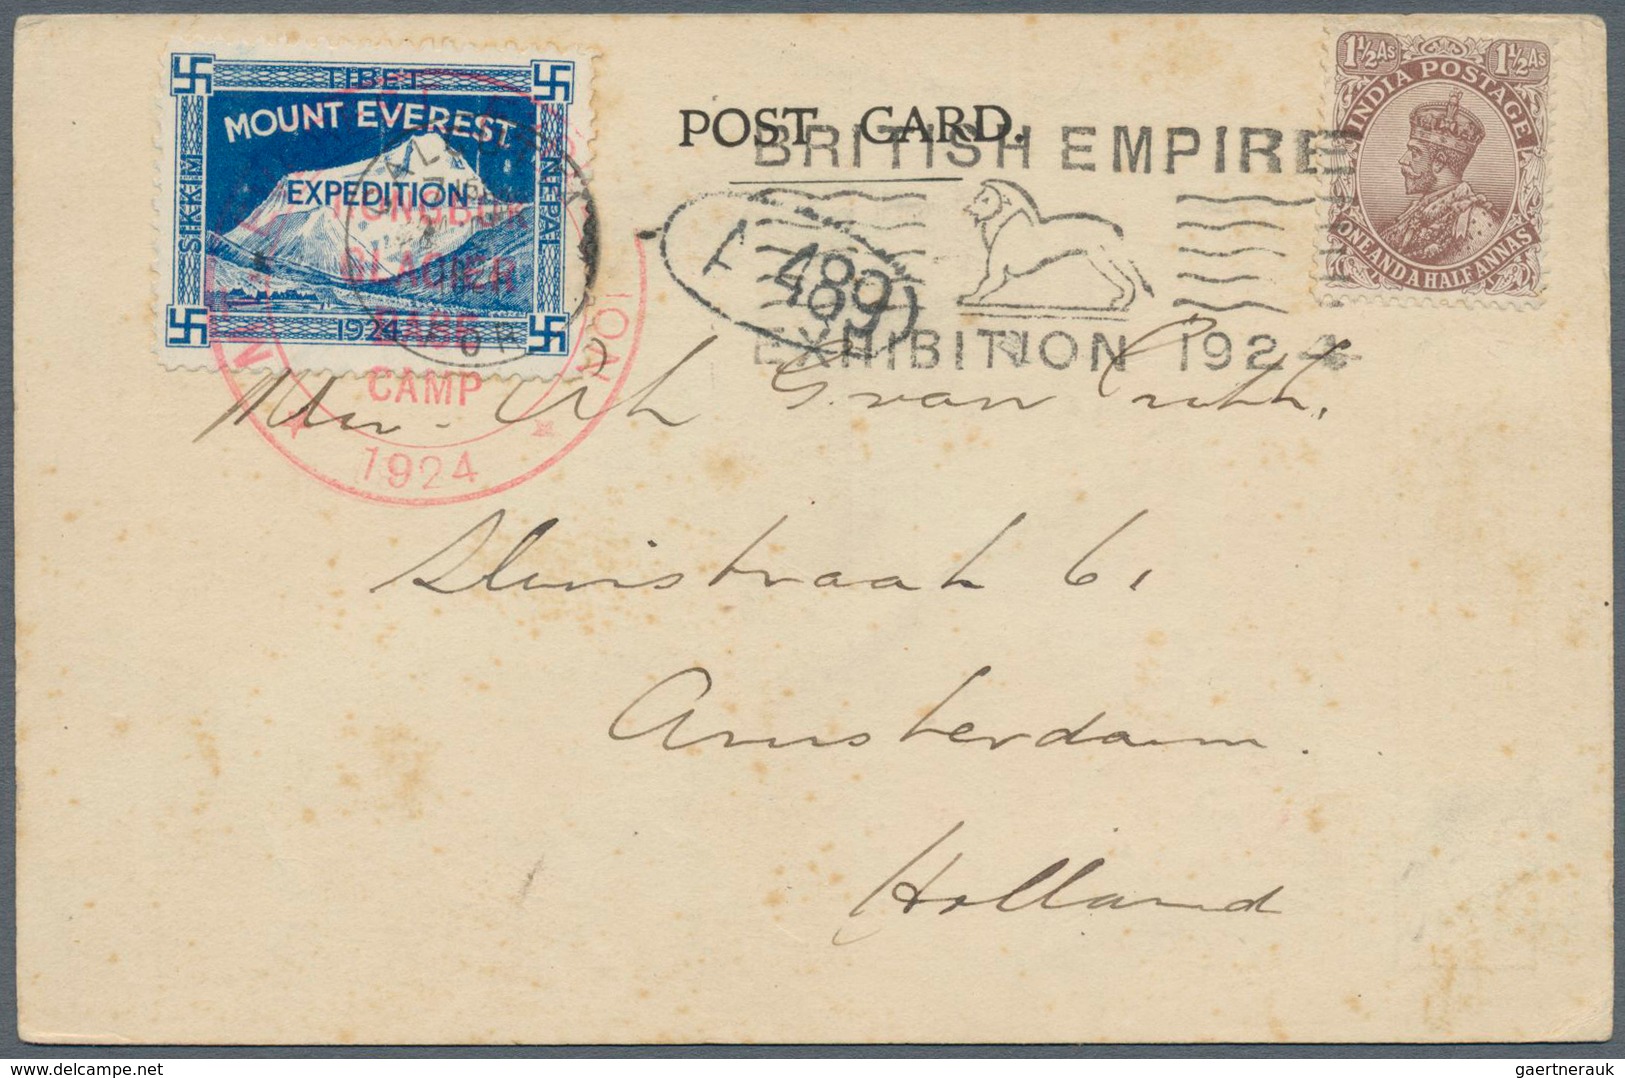 TIBET
MOUNT EVEREST
EXPEDITION
SIKKIM
NEPAL
1924
RONGBUK
GLACIER
BASE
CAMP
1924
POST CARD.
BRITISH EMPIRE
EXHIBITION 1924
489
1½As 1½As
INDIA POSTAGE
ONE AND A HALF ANNAS
G. van
61
Amsterdam.
Holland
gaertnerauk